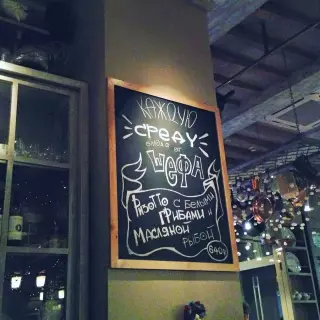 КАЖДУЮ
СРЕДУ
БЛЮДО ОТ
ШЕФА
РИЗОТТО С БЕЛЫМИ
ГРИБАМИ И
МАСЛЯНОЙ
РЫБОЙ
640